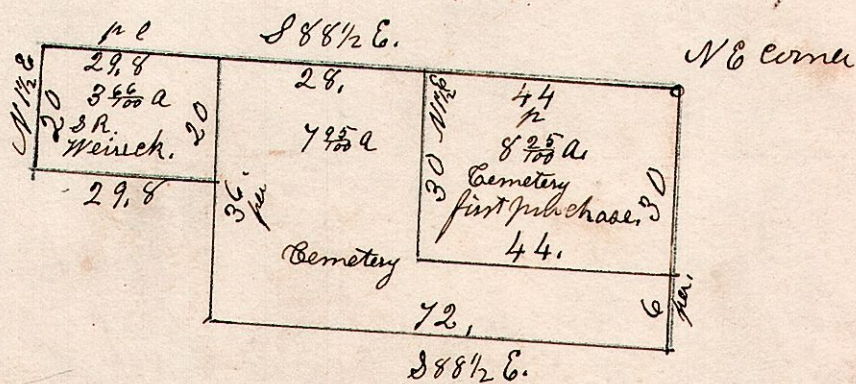 pe
S 88 1/2 E.
N E Corner
N 1 1/2 E
29,8
3 66/100 a
S R.
Weireck.
20
20
29,8
28,
7 95/100 a
36. per.
Cemetery
N 1 1/2 E
30
44
p
8 25/100 a.
Cemetery
first purchase.
44.
30
6 per.
72,
S 88 1/2 E.